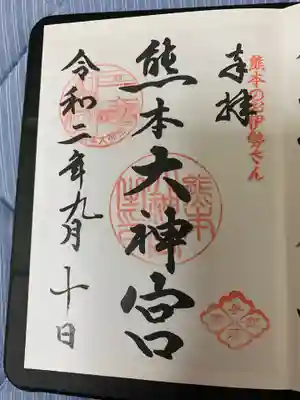 奉拝
熊本のお伊勢さん
熊本大神宮
令和二年九月十日